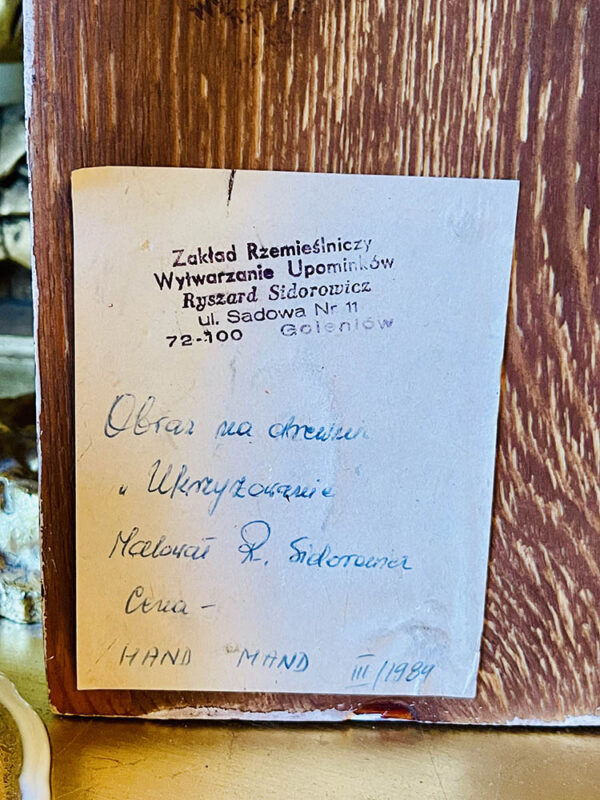 Zakład Rzemieślniczy
Wytwarzanie Upominków
Ryszard Sidorowicz
ul. Sadowa Nr 11
72-100 Goleniów
Obraz na drewnie
„Ukrzyżowanie
Malował R. Sidorowicz
Cena –
HAND MAND III/1984